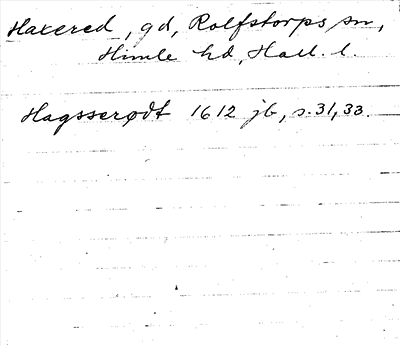 Haxered, gd, Rolfstorps sn,
Himle hd, Hall. l.
Hagsserødt 1612 jb, s. 31, 33.